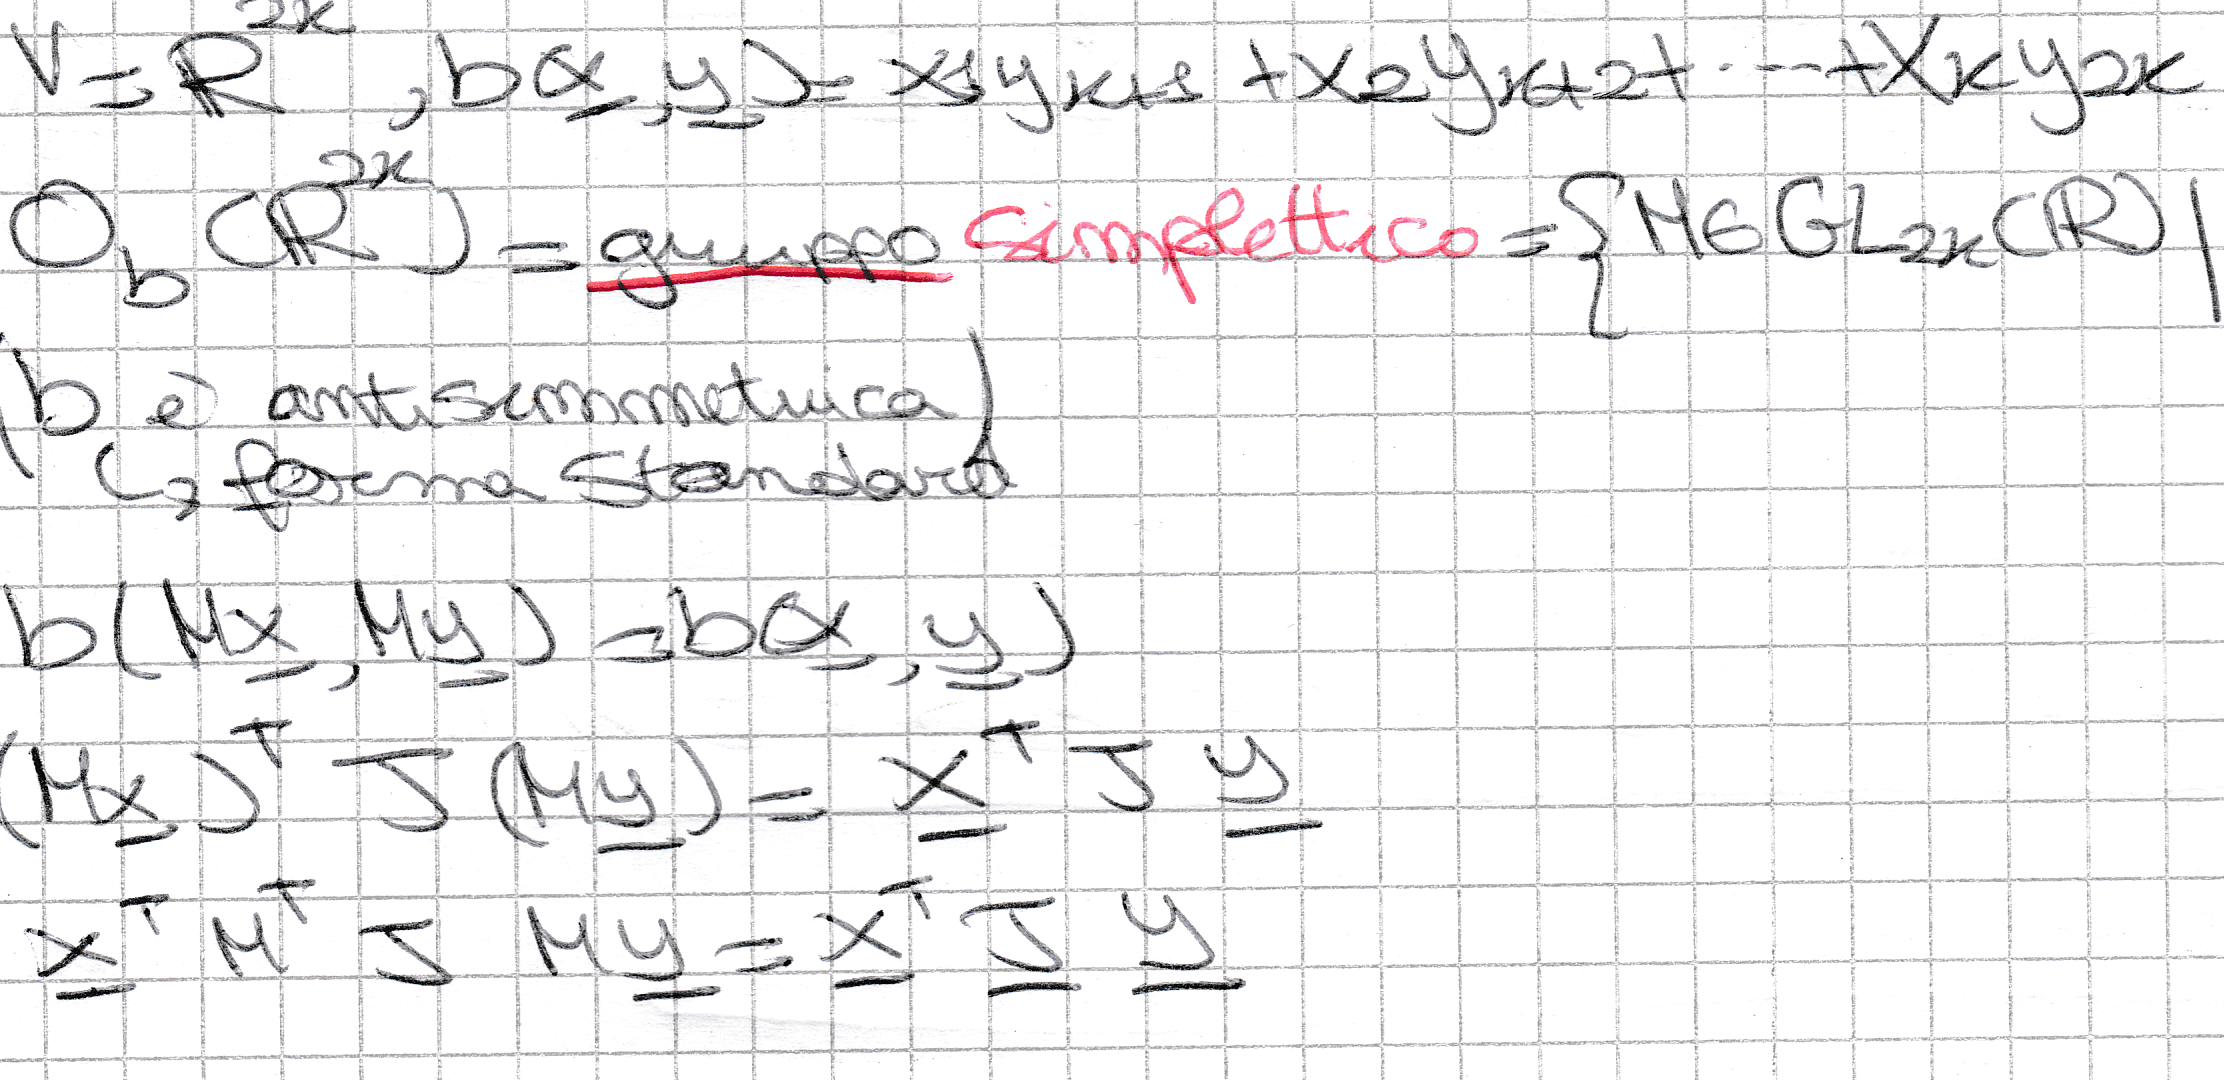 V = ℝ^{2k}, b(x, y) = x₁y_{k+1} + x₂y_{k+2} + ... + x_k y_{2k}
O_b(ℝ^{2k}) = gruppo simplettico = { M ∈ GL_{2k}(ℝ) |
(b è antisimmetrica)
↳ forma standard
b(Mx, My) = b(x, y)
(Mx)^T J (My) = x^T J y
x^T M^T J M y = x^T J y